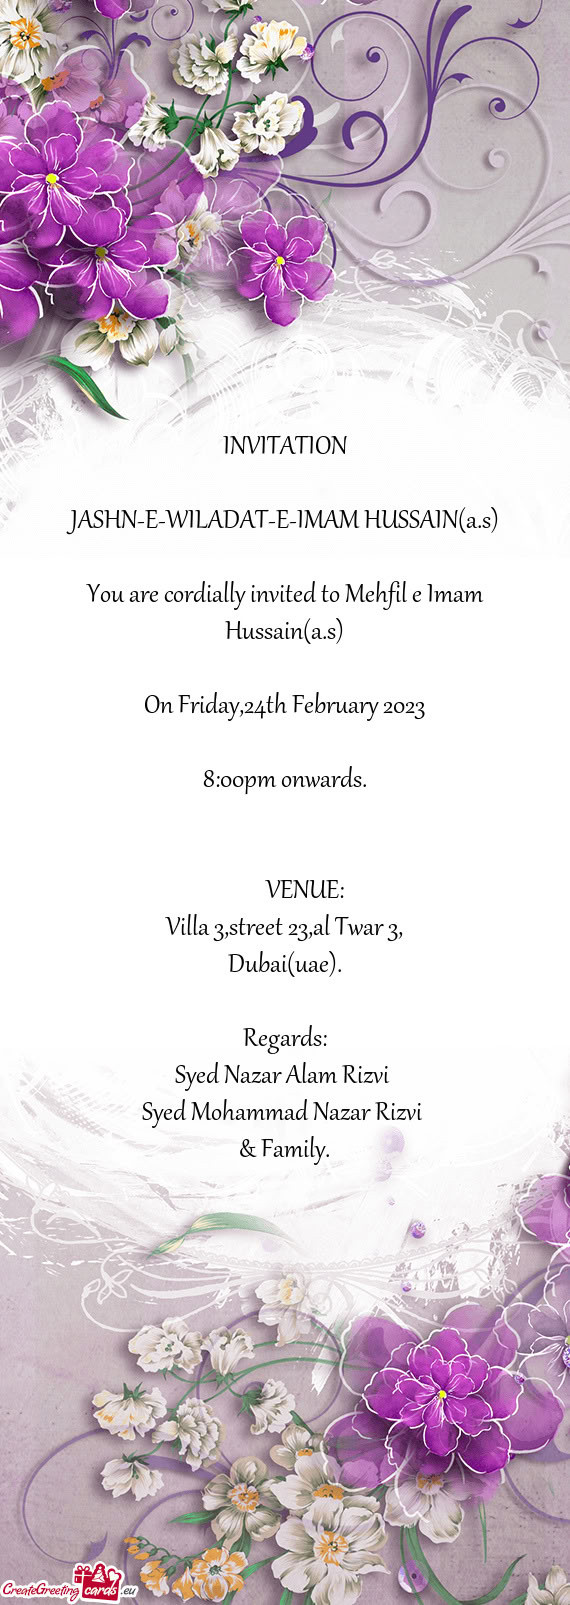 INVITATION
JASHN-E-WILADAT-E-IMAM HUSSAIN(a.s)
You are cordially invited to Mehfil e Imam
Hussain(a.s)
On Friday,24th February 2023
8:00pm onwards.
VENUE:
Villa 3,street 23,al Twar 3,
Dubai(uae).
Regards:
Syed Nazar Alam Rizvi
Syed Mohammad Nazar Rizvi
& Family.
CreateGreeting cards .eu